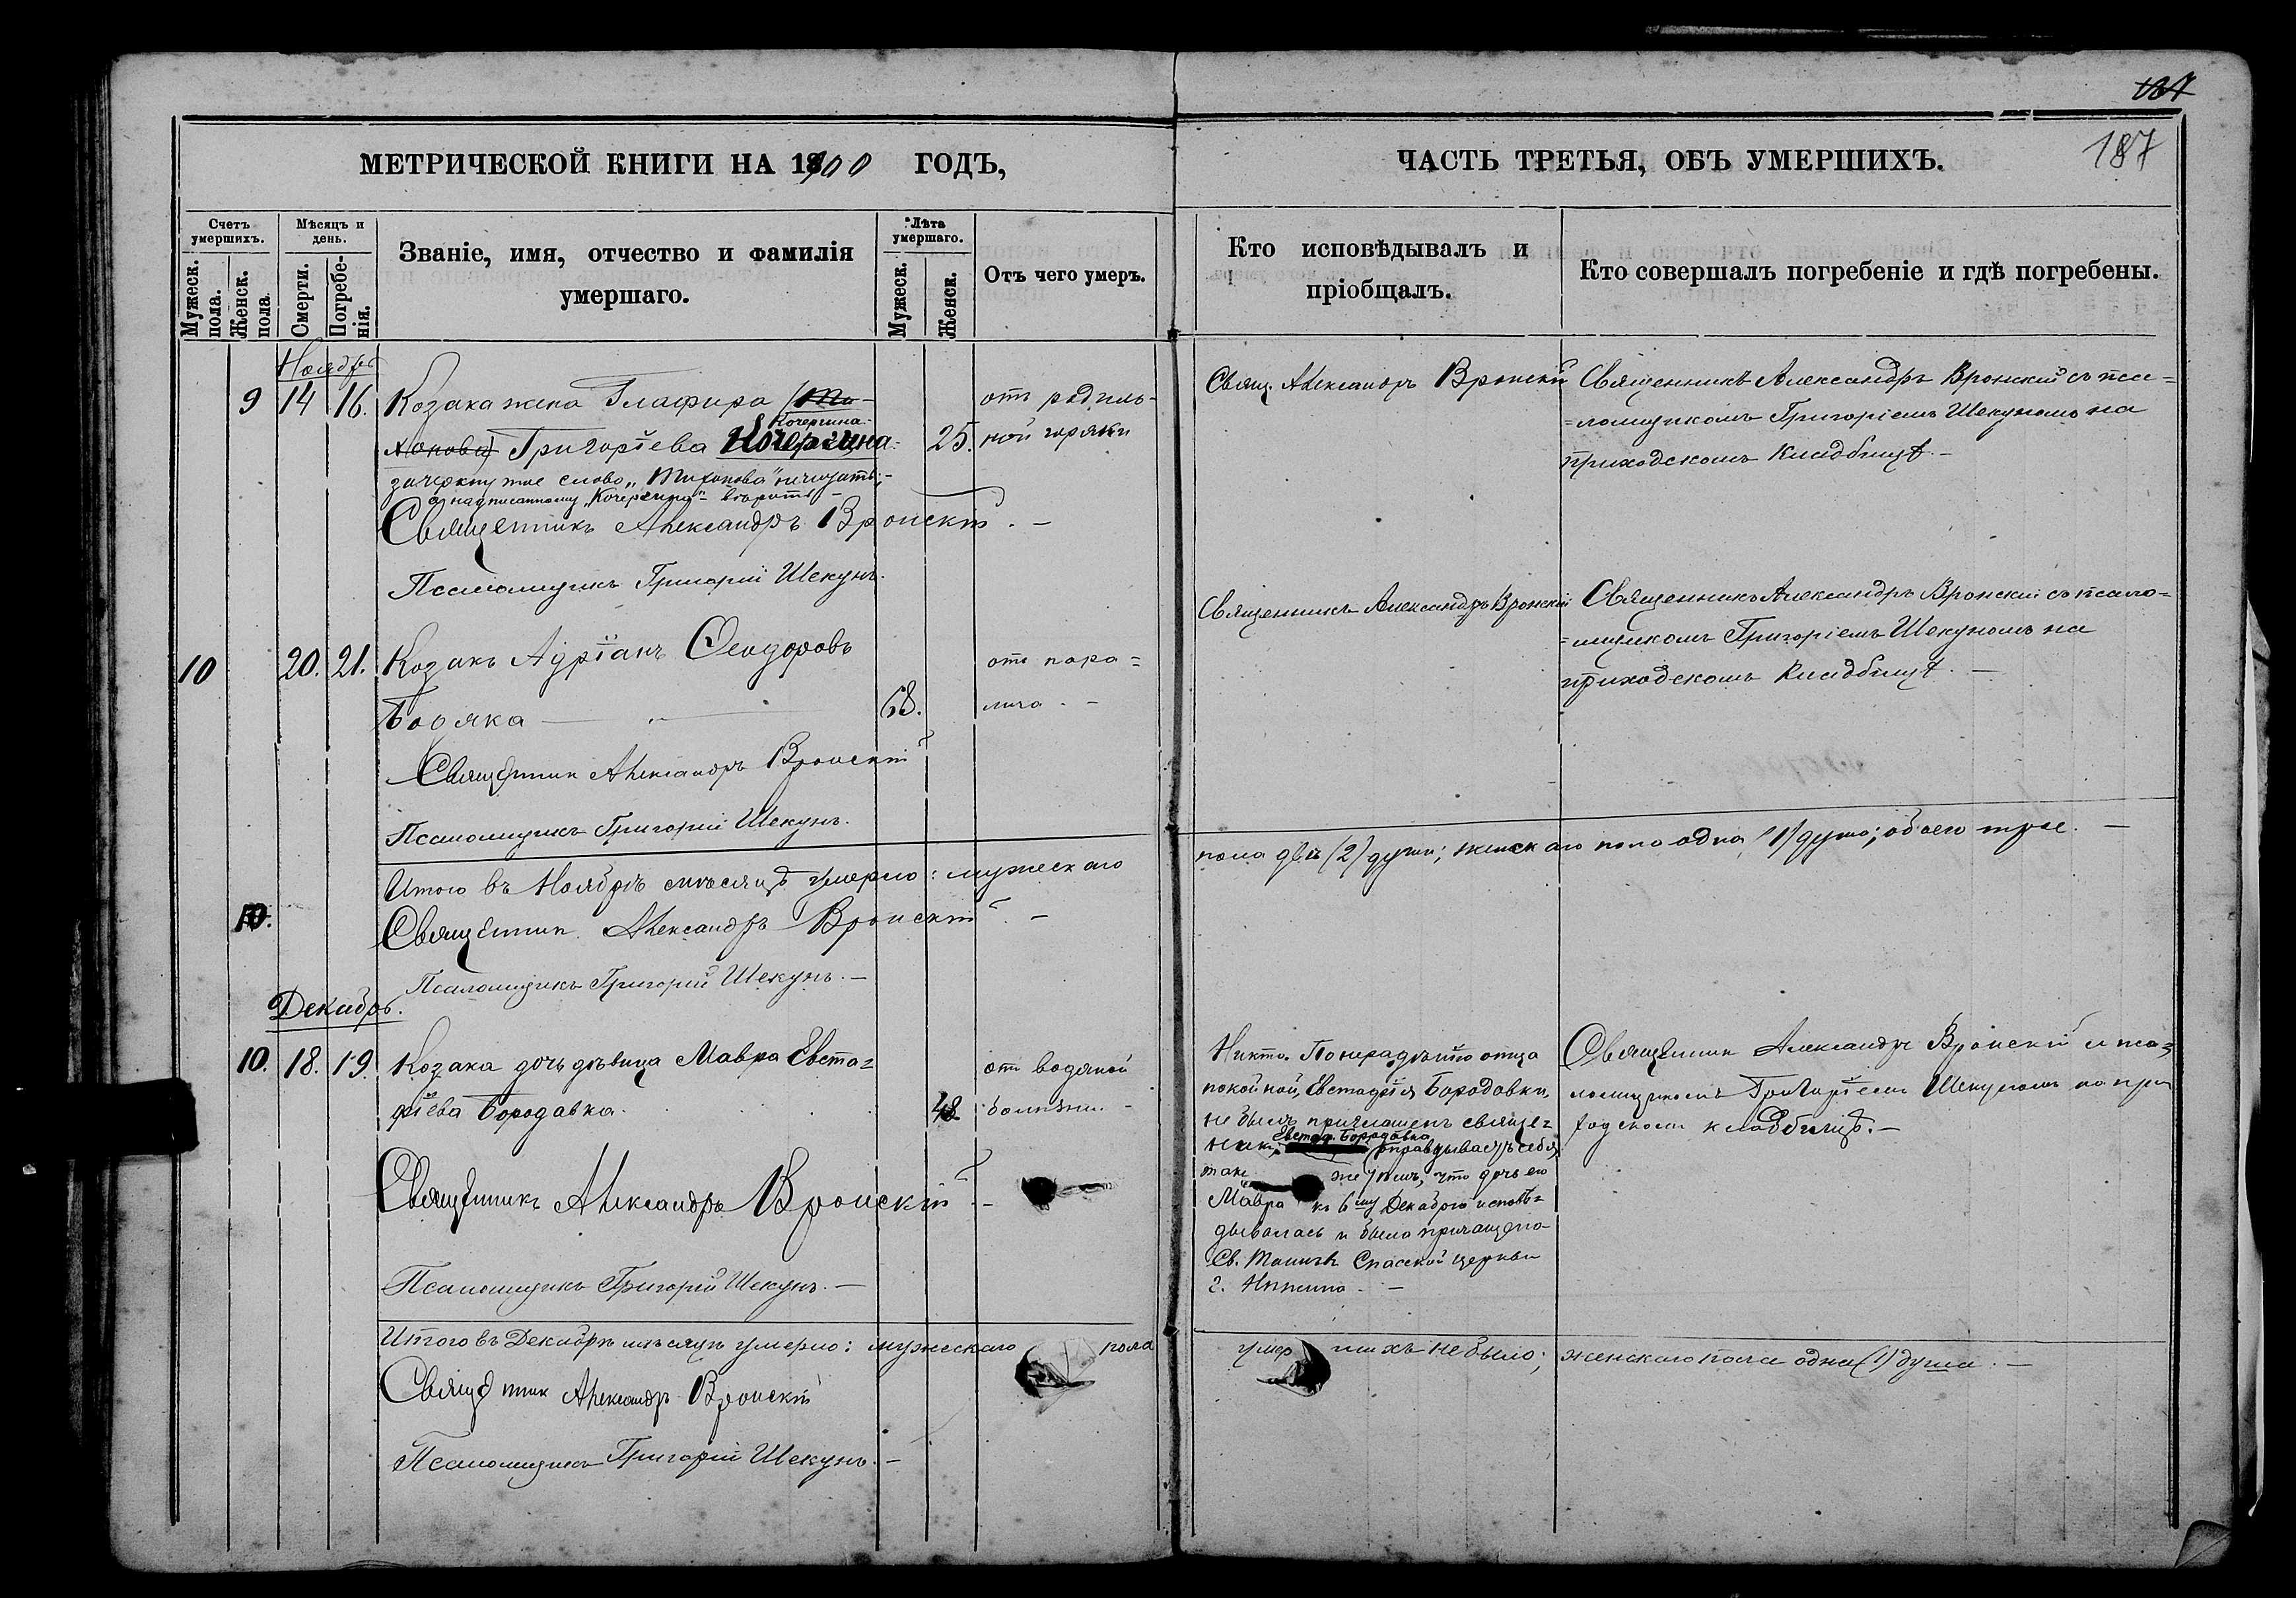 187
МЕТРИЧЕСКОЙ КНИГИ НА 1900 ГОДЪ,
ЧАСТЬ ТРЕТЬЯ, ОБЪ УМЕРШИХЪ.
187
Счетъ умершихъ.
Мужеск. пола.
Женск. пола.
Мѣсяцъ и день.
Смерти.
Погребенія.
Званіе, имя, отчество и фамилія
умершаго.
Лѣта умершаго.
Мужеск.
Женск.
Отъ чего умеръ.
Кто исповѣдывалъ и
пріобщалъ.
Кто совершалъ погребеніе и гдѣ погребены.
Ноябрь
9 14 16. Козака жена Глафира (Ти-
Кочергина
хонова) Григоріева Кочергина 25.
зачеркнутое слово „Тихонова"
а надписанному „Кочергина" вѣрить -
Священникъ Александръ Вронскій. -
Псаломщикъ Григорій Шекунъ.
отъ родиль-
ной горячки
Свящ. Александръ Вронскій
Священникъ Александръ Вронскій съ пса=
=ломщикомъ Григоріемъ Шекуномъ на
приходскомъ кладбищѣ. -
10 20. 21. Козакъ Адріанъ Ѳеодоровъ
Бояка 68.
Священник Александръ Вронскій
Псаломщикъ Григорій Шекунъ.
отъ пара=
лича. -
Священникъ Александръ Вронскій
Священникъ Александръ Вронскій съ псало=
=мщикомъ Григоріемъ Шекуномъ на
приходскомъ кладбищѣ. -
Итого въ Ноябрѣ мѣсяцѣ умерло: мужескаго
пола двѣ (2) души; женскаго пола одна (1) душа; обоего трое. -
10.
Священник Александръ Вронскій. -
Псаломщикъ Григорій Шекунъ. -
Декабрь.
10. 18. 19. Козака дочь дѣвица Мавра Евста=
фіева Бородавка. 48
Священникъ Александръ Вронскій -
Псаломщикъ Григорій Шекунъ. -
отъ водяной
болѣзни. -
Никто. По нерадѣнію отца
покойной, Евстафія Бородавки,
не былъ приглашенъ священ=
Евстаф. Бородавка
никъ, оправдываетъ себя
так же тѣмъ, что дочь его
Мавра къ 6му Декабрю исповѣ=
дывалась и была причащена
Св. Таинъ Спасской церкви
г. Нѣжина. -
Священник Александръ Вронскій и пса=
ломщикомъ Григоріем Шекуномъ на при
ходском кладбищѣ. -
Итого въ Декабрѣ мѣсяцѣ умерло: мужескаго пола
умер шихъ не было; женскаго пола одна (1) душа. -
Священник Александръ Вронскій
Псаломщикъ Григорій Шекунъ. -